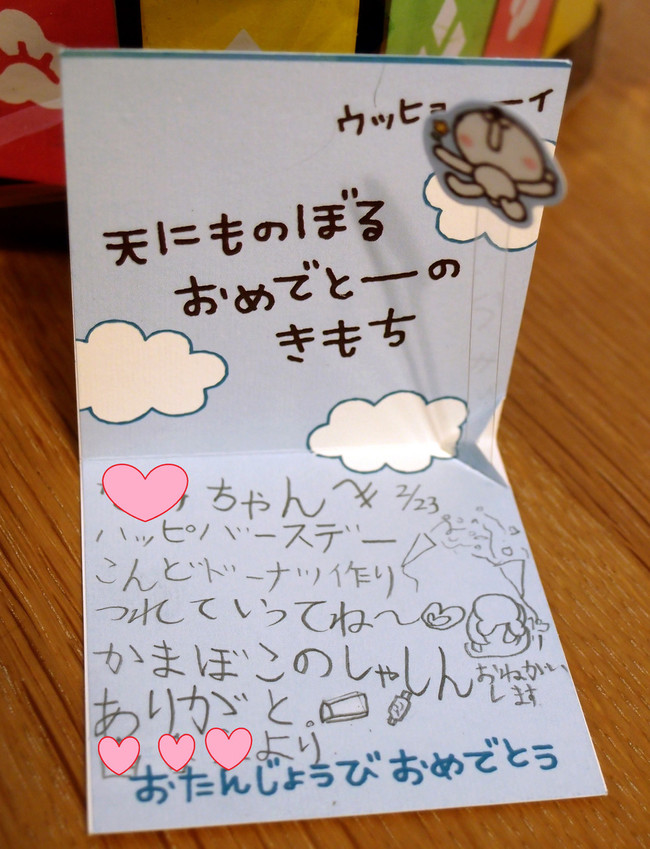 ウッヒョーーイ
天にものぼる
おめでとーの
きもち
ちゃんへ 2/23
ハッピバースデー
こんどドーナツ作り
つれていってね〜
かまぼこのしゃしん
ありがと。
おねがい
します
より
おたんじょうび おめでとう